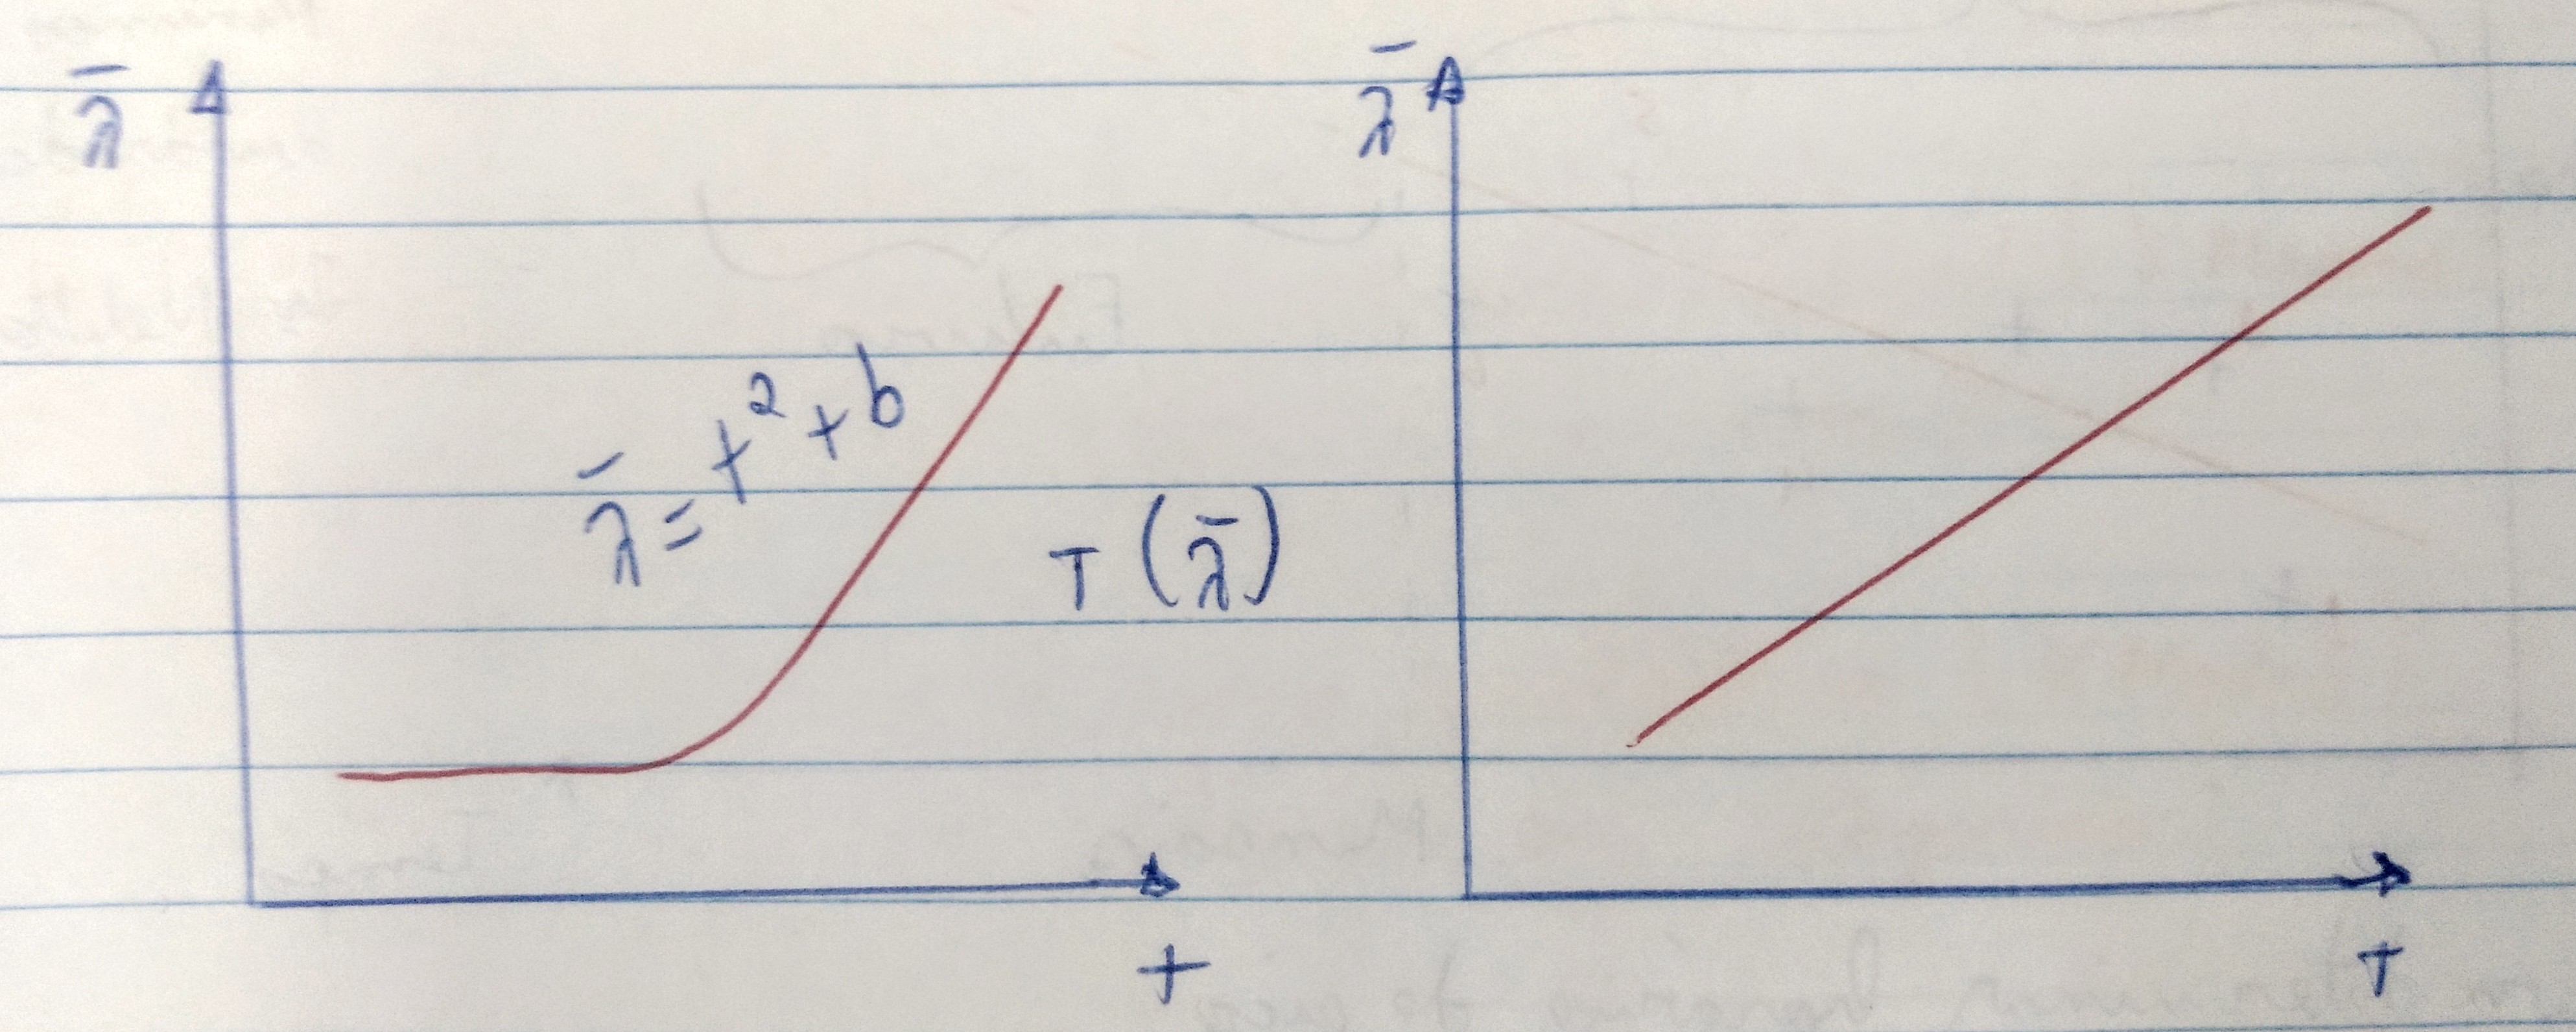 λ̄
λ̄ = t² + b
t
T (λ̄)
λ̄
T